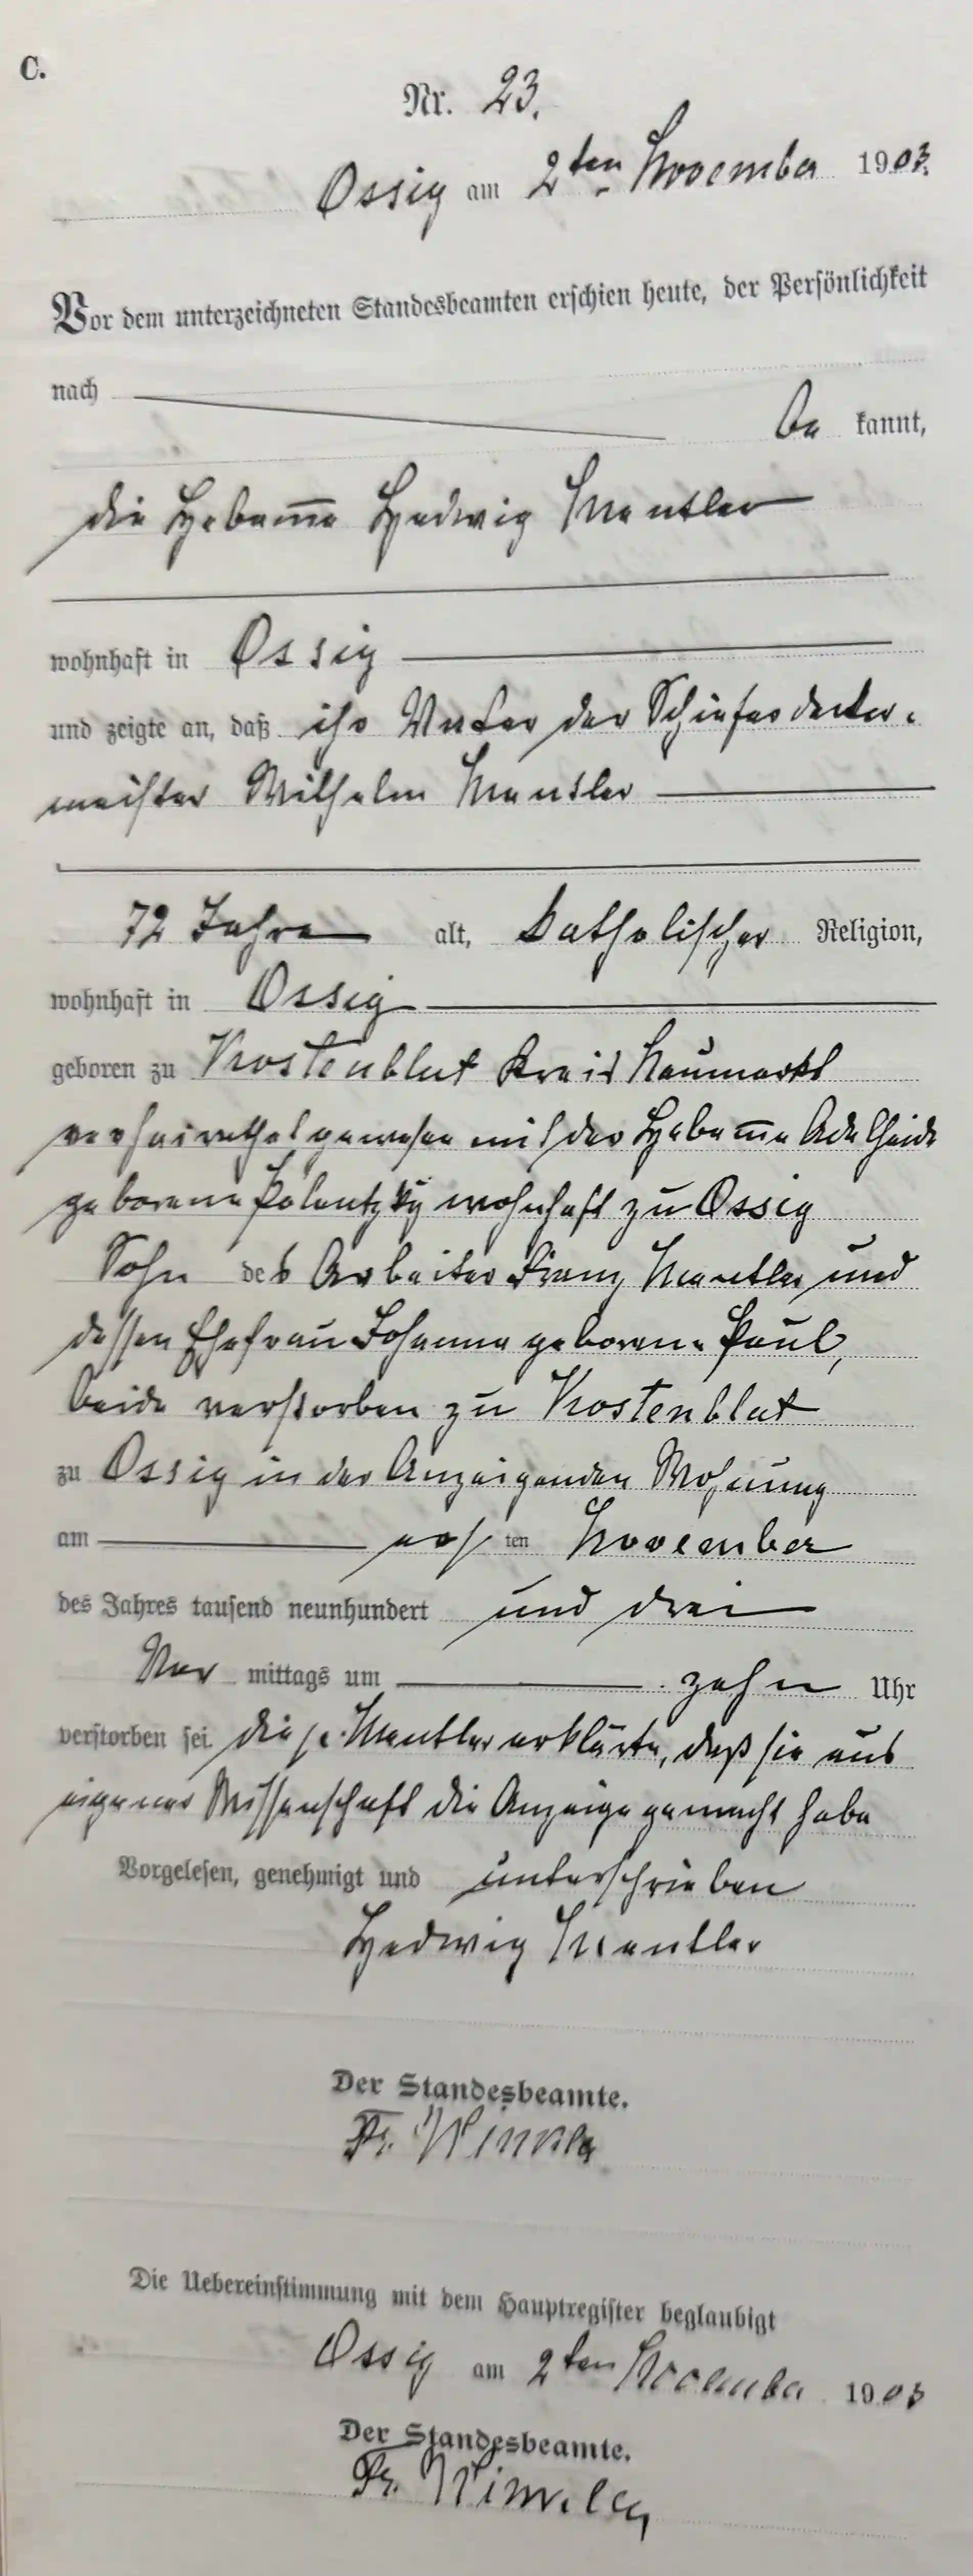 C.
Nr. 23.
Ossig am 2ten November 1903.
Vor dem unterzeichneten Standesbeamten erschien heute, der Persönlichkeit
nach be kannt,
die Hebam̅e Hedwig Mentler
wohnhaft in Ossig
und zeigte an, daß ihr Vater der Schieferdecker-
meister Wilhelm Mentler
72 Jahre alt, katholischer Religion,
wohnhaft in Ossig
geboren zu Kostenblut Kreis Neumarkt
verheirathet gewesen mit der Hebam̅e Adelheide
geborene wohnhaft zu Ossig
Sohn des Arbeiter Franz Mentler und
dessen Ehefrau Johanna geborene Paul,
beide verstorben zu Kostenblut
zu Ossig in der Anzeigenden Wohnung
am ersten November
des Jahres tausend neunhundert und drei
Vor mittags um zehn Uhr
verstorben sei. die p. Mentler erklärte, daß sie aus
eigener Wissenschaft die Anzeige gemacht habe
Vorgelesen, genehmigt und unterschrieben
Hedwig Mentler
Der Standesbeamte.
Fr. Winkler
Die Uebereinstimmung mit dem Hauptregister beglaubigt
Ossig am 2ten November 1903
Der Standesbeamte.
Fr. Winkler